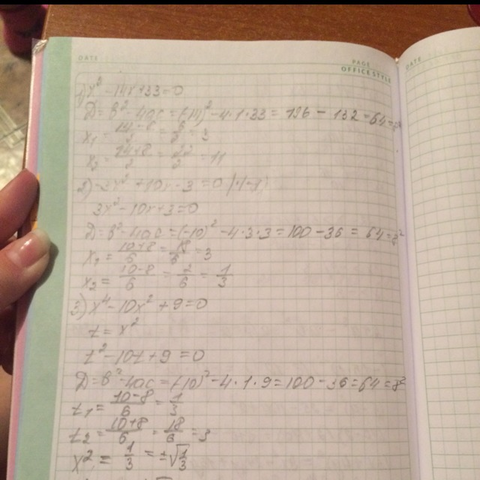 DATE PAGE DATE
OFFICE STYLE
1) x² - 14x + 33 = 0
D = b² - 4ac = (-14)² - 4·1·33 = 196 - 132 = 64 = 8²
x₁ = (14-8)/2 = 6/2 = 3
x₂ = (14+8)/2 = 22/2 = 11
2) -3x² + 10x - 3 = 0 |·(-1)
3x² - 10x + 3 = 0
D = b² - 4ac = (-10)² - 4·3·3 = 100 - 36 = 64 = 8²
x₁ = (10+8)/6 = 18/6 = 3
x₂ = (10-8)/6 = 2/6 = 1/3
3) x⁴ - 10x² + 9 = 0
t = x²
t² - 10t + 9 = 0
D = b² - 4ac = (-10)² - 4·1·9 = 100 - 36 = 64 = 8²
t₁ = (10-8)/6 = 1/3
t₂ = (10+8)/6 = 18/6 = 3
x² = 1/3 = ±√(1/3)